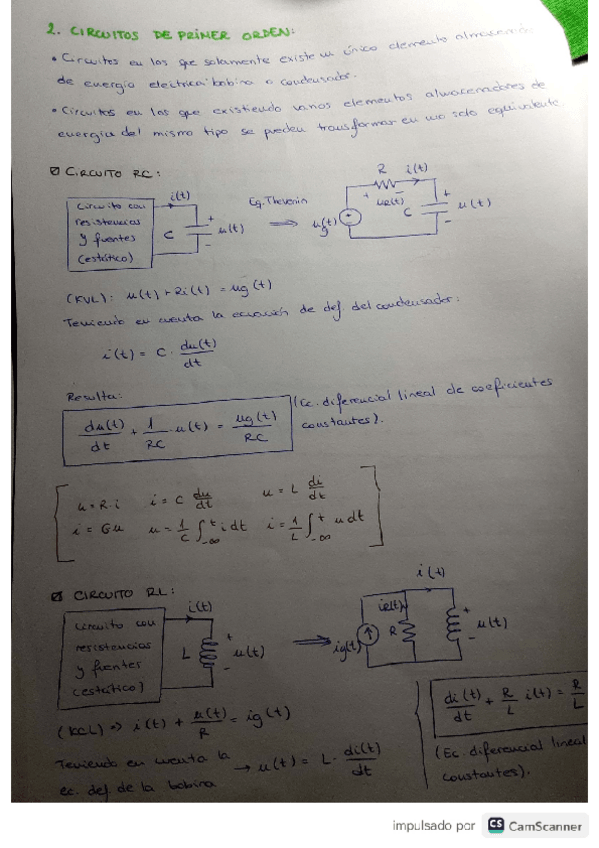 2. CIRCUITOS DE PRIMER ORDEN:
• Circuitos en los que solamente existe un único elemento
de energía eléctrica: bobina o condensador.
• Circuitos en los que existiendo varios elementos almacenadores de
energía del mismo tipo se pueden transformar en uno solo equivalente
CIRCUITO RC:
Circuito con
resistencias
y fuentes
(estático)
i(t)
C
+
u(t)
-
Eq. Thevenin
ug(t)
R
i(t)
+ uR(t) -
C
+
u(t)
-
(KVL): u(t) + Ri(t) = ug(t)
Teniendo en cuenta la ecuación de def. del condensador:
i(t) = C · du(t)/dt
Resulta:
du(t)/dt + 1/RC · u(t) = ug(t)/RC
(Ec. diferencial lineal de coeficientes
constantes).
u = R·i i = C du/dt u = L di/dt
i = Gu u = 1/C ∫_-∞^t i dt i = 1/L ∫_-∞^t u dt
CIRCUITO RL:
Circuito con
resistencias
y fuentes
(estático)
i(t)
L
+
u(t)
-
ig(t)
iR(t)
R
i(t)
+
u(t)
-
(KCL) => i(t) + u(t)/R = ig(t)
Teniendo en cuenta la
ec. def. de la bobina → u(t) = L · di(t)/dt
di(t)/dt + R/L i(t) = R/L
(Ec. diferencial lineal
constantes).
impulsado por CS CamScanner